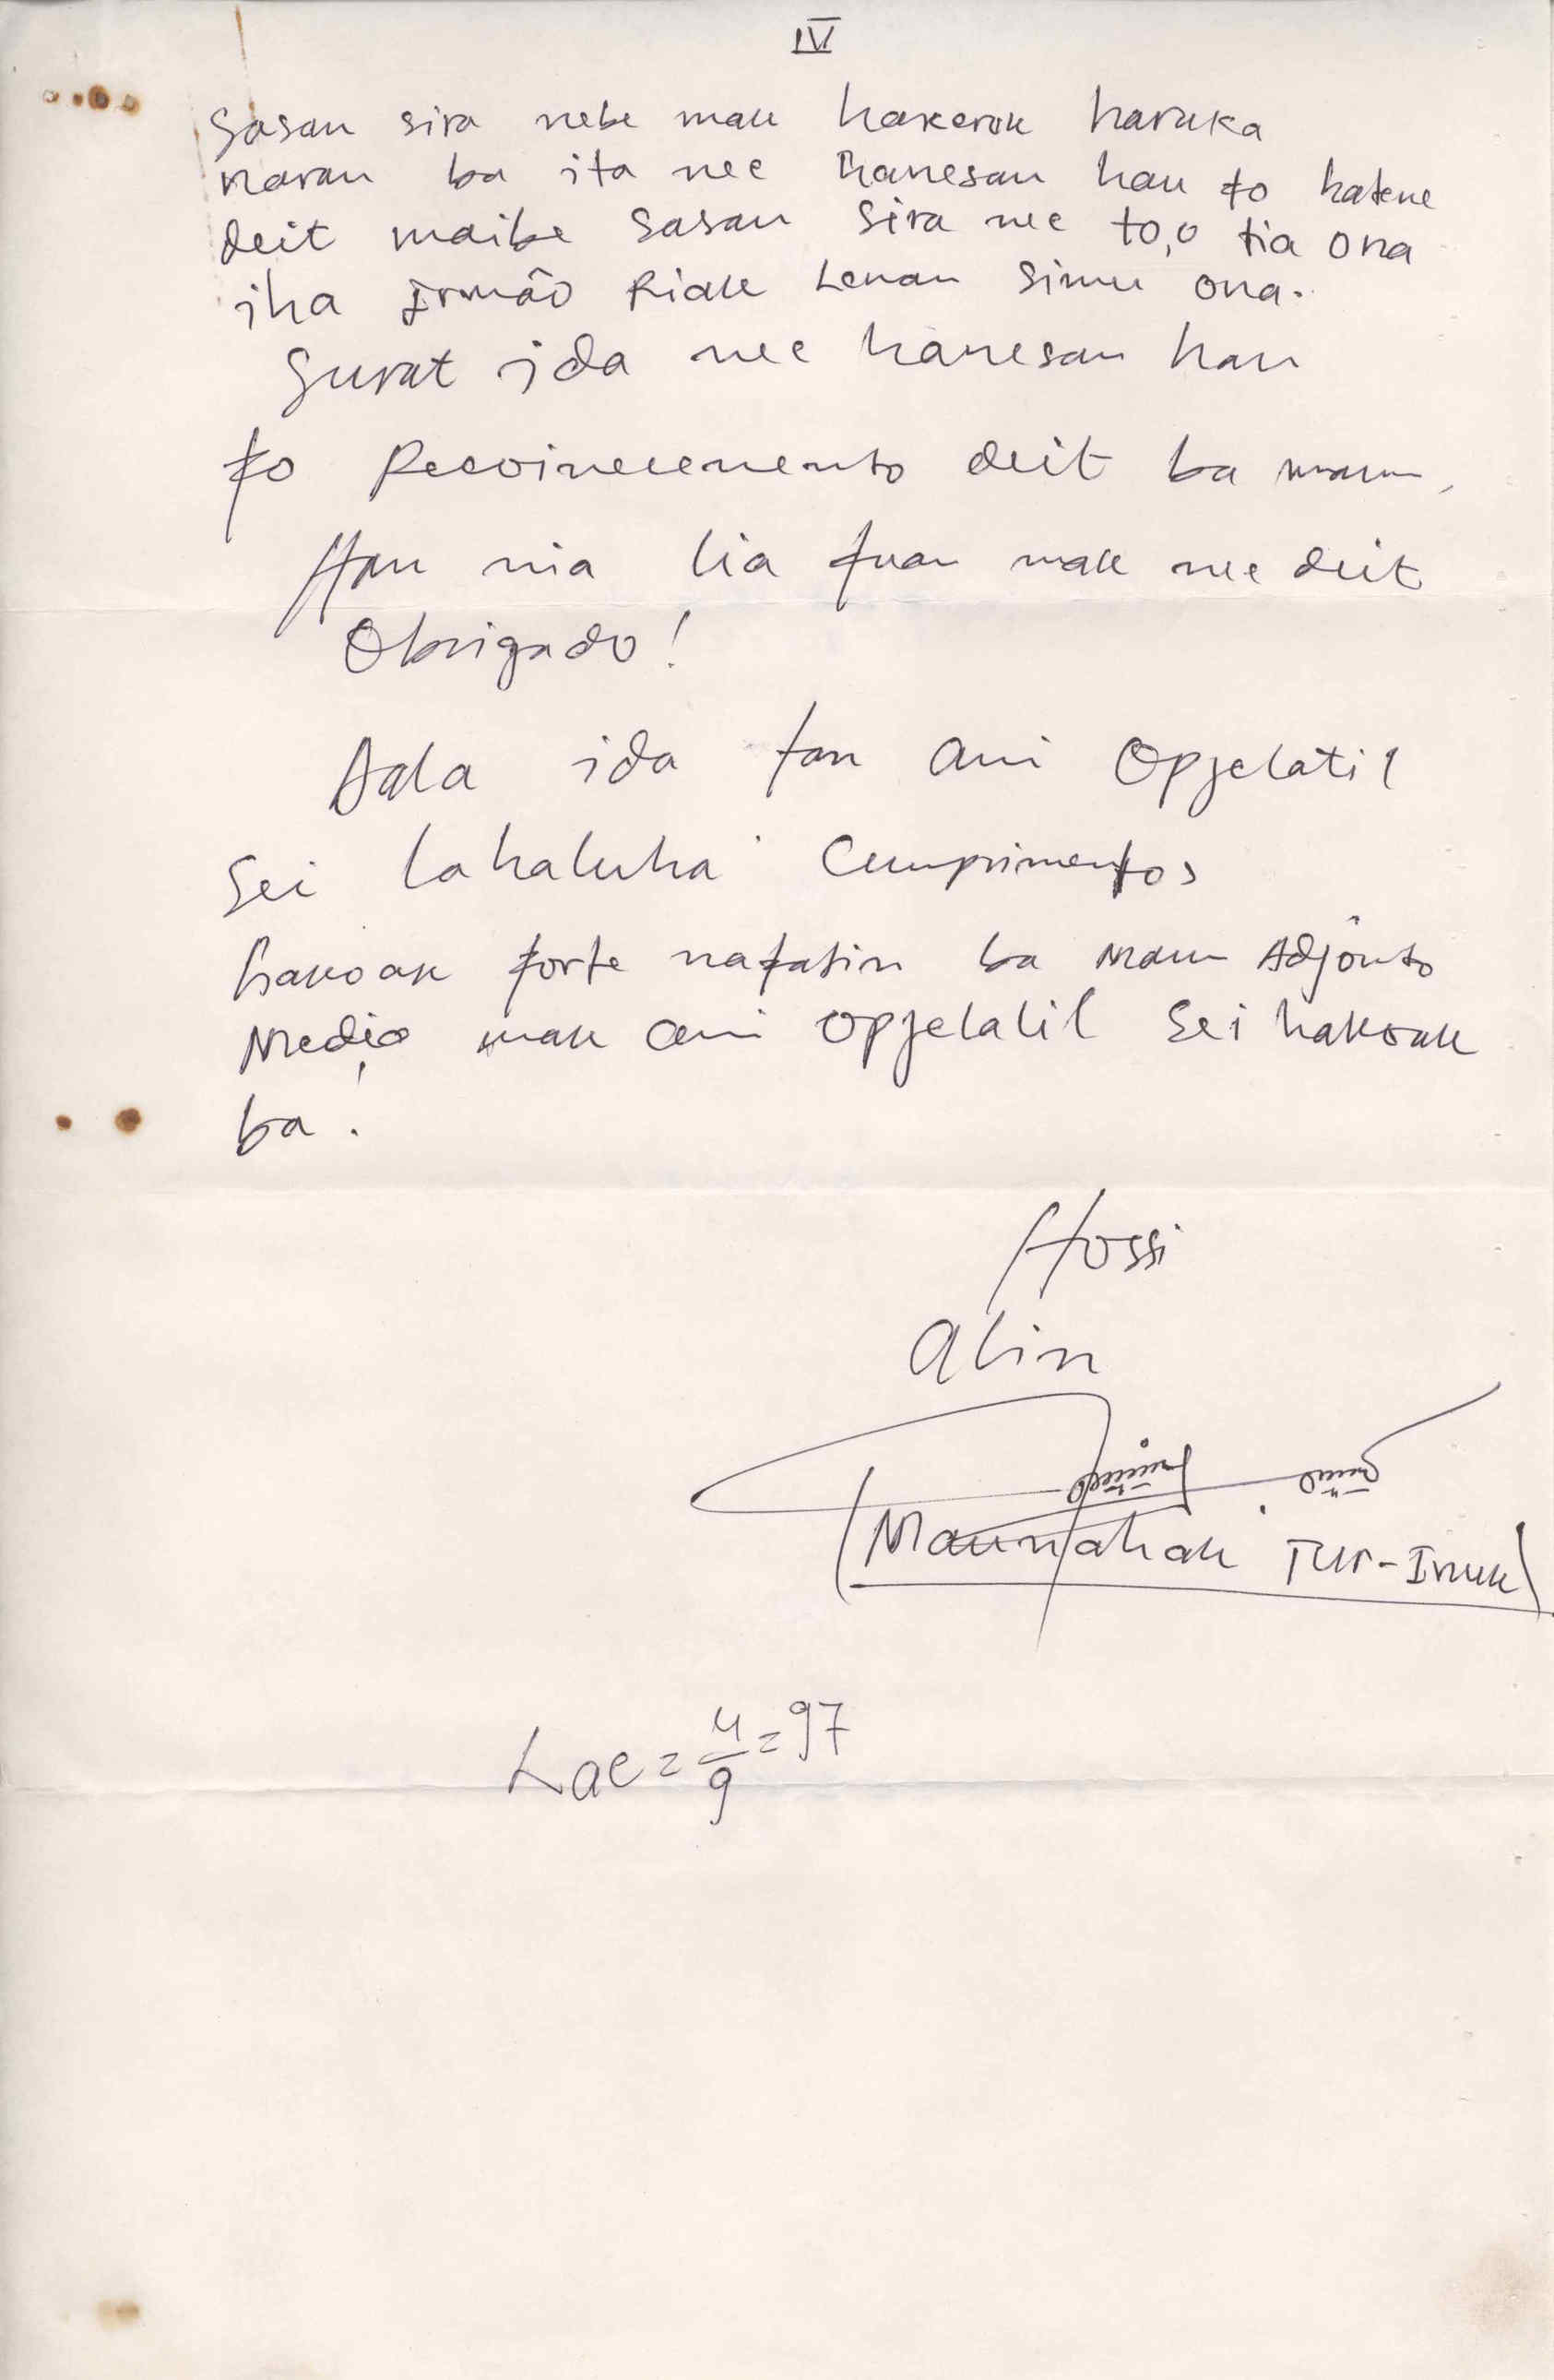 IV
Sasan sira nebe mak hakerek haruka
naran ba ita nee hanesan hau fo hatene
deit maibe sasan sira nee to,o tia ona
iha Irmão Riak Lenan simu ona.
Surat ida nee hanesan hau
fo Recoinecemento deit ba maun,
Hau nia lia fuan mak nee deit
Obrigado!
Dala ida tan ami Opjelatil
sei lahaluha Cumprimentos
hakoak forte nafatin ba maun Adjônto
Medio mak ami opjelatil sei hakoak
ba!
Hossi
Alin
(Maunahak Tur-Inuk)
Lae = 4/9 = 97